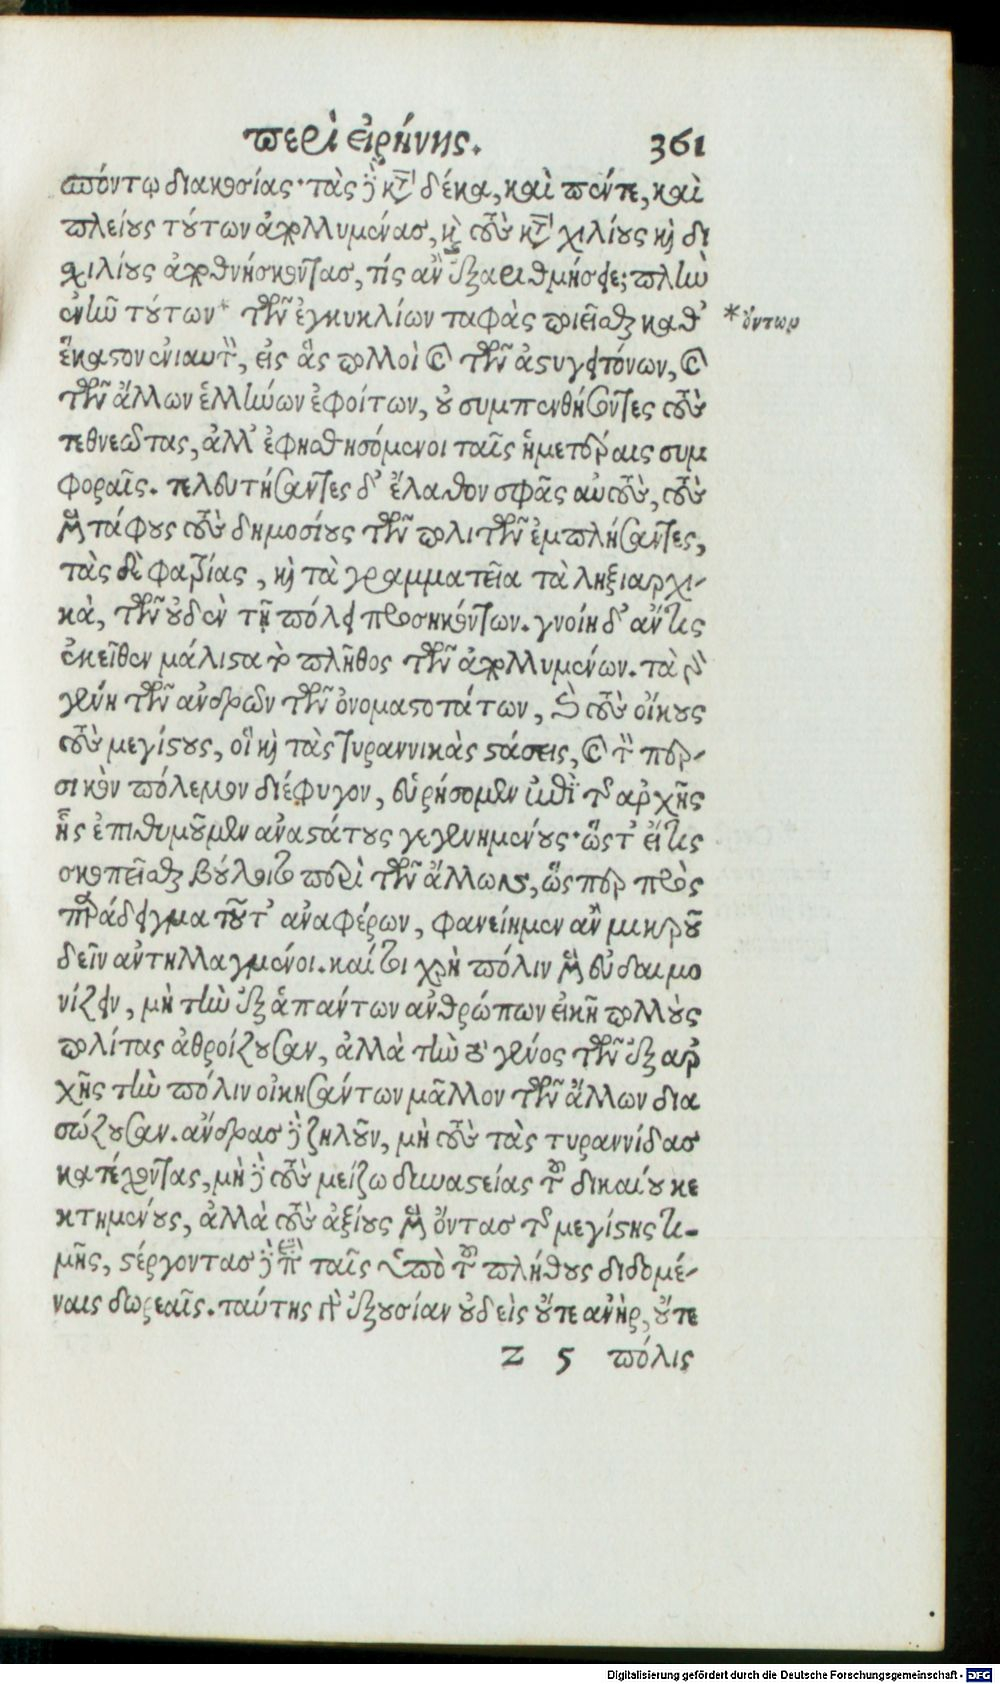 περὶ εἰρήνης. 361
πόντῳ διακοσίας· τὰς δὲ κατὰ δέκα, καὶ πέντε, καὶ
πλείους τούτων ἀπολλυμένας, καὶ τοὺς κατὰ χιλίους καὶ δι
χιλίους ἀποθνήσκοντας, τίς ἂν ἐξαριθμήσειε; πλὴν
ἓν ἦν τούτων* τῶν ἐγκυκλίων ταφὰς ποιεῖσθαι καθ’ *οὕντωρ
ἕκαστον ἐνιαυτὸν, εἰς ἃς πολλοὶ καὶ τῶν ἀστυγειτόνων, καὶ
τῶν ἄλλων ἑλλήνων ἐφοίτων, οὐ συμπενθήσοντες τοὺς
τεθνεῶτας, ἀλλ’ ἐφησθησόμενοι ταῖς ἡμετέραις συμ
φοραῖς. τελευτήσαντες δ’ ἔλαθον σφᾶς αὐτοὺς, τοὺς
μὲν τάφους τοὺς δημοσίους τῶν πολιτῶν ἐμπλήσαντες,
τὰς δὲ φατρίας, καὶ τὰ γραμματεῖα τὰ ληξιαρχι-
κὰ, τῶν οὐδὲν τῇ πόλει προσηκόντων. γνοίη δ’ ἄν τις
ἐκεῖθεν μάλιστα τὸ πλῆθος τῶν ἀπολλυμένων. τὰ γὰρ
γένη τῶν ἀνδρῶν τῶν ὀνομαστοτάτων, καὶ τοὺς οἴκους
τοὺς μεγίστους, οἳ καὶ τὰς τυραννικὰς στάσεις, καὶ τὸν περ-
σικὸν πόλεμον διέφυγον, εὑρήσομεν ἐπὶ τῆς ἀρχῆς
ἧς ἐπιθυμοῦμεν ἀναστάτους γεγενημένους· ὥστ’ εἴ τις
σκοπεῖσθαι βούλοιτο περὶ τῶν ἄλλων, ὥσπερ πρὸς
παράδειγμα τοῦτ’ ἀναφέρων, φανείημεν ἂν μικροῦ
δεῖν ἀντηλλαγμένοι. καίτοι χρὴ πόλιν μὲν εὐδαιμο
νίζειν, μὴ τὴν ἐξ ἁπάντων ἀνθρώπων εἰκῆ πολλοὺς
πολίτας ἀθροίζουσαν, ἀλλὰ τὴν τὸ γένος τῶν ἐξ ἀρ
χῆς τὴν πόλιν οἰκησάντων μᾶλλον τῶν ἄλλων δια
σώζουσαν. ἄνδρας δὲ ζηλοῦν, μὴ τοὺς τὰς τυραννίδας
κατέχοντας, μὴ δὲ τοὺς μείζω δυναστείας τοῦ δικαίου κε
κτημένους, ἀλλὰ τοὺς ἀξίους μὲν ὄντας τῆς μεγίστης τι-
μῆς, στέργοντας δὲ ἐπὶ ταῖς ὑπὸ τοῦ πλήθους διδομέ-
ναις δωρεαῖς. ταύτης γὰρ ἐξουσίαν οὐδεὶς οὔτε ἀνὴρ, οὔτε
Z 5 πόλις
Digitalisierung gefördert durch die Deutsche Forschungsgemeinschaft - DFG